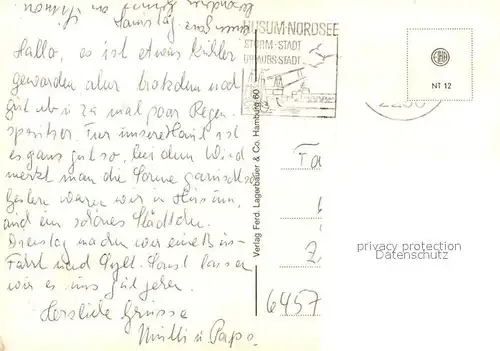 Samstag
Hallo, es ist etwas kühler
geworden aber trotzdem und
gut ab u zu mal paar Regen-
spritzer. Für unsere Haut ist
es ganz gut so, bei dem Wind
merkt man die Sonne garnicht so
Gestern waren wir in Husum,
auch ein schönes Städtchen.
Dienstag machen wir eine
Fahrt nach Sylt. Sonst lassen
wir es uns gut gehen.
Herzliche Grüsse
Mutti u Papa.
HUSUM-NORDSEE
STORM-STADT
URLAUBSSTADT
Verlag Ferd. Lagerbauer & Co. Hamburg 60
NT 12
2250
6457
privacy protection
Datenschutz